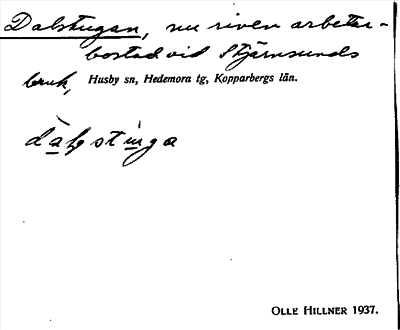 Dalstugan, nu riven arbetar-
bostad vid Stjärnsunds
bruk, Husby sn, Hedemora tg, Kopparbergs län.
OLLE HILLNER 1937.